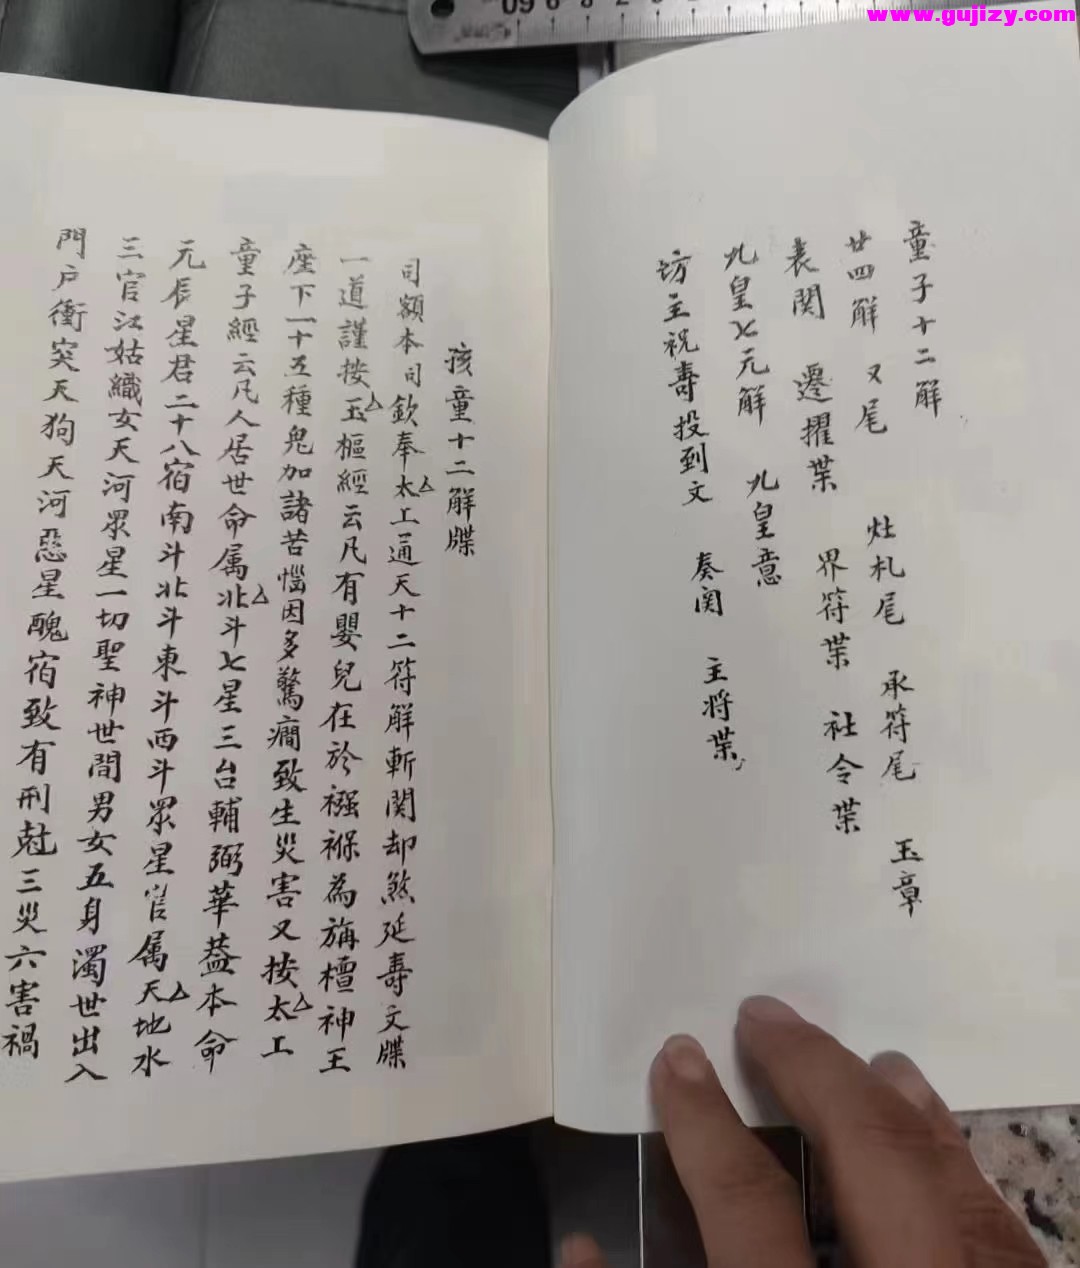 www.gujizy.com
童子十二解
廿四解 又尾 灶札尾 承符尾 玉章
表関 遷擢枼 界符枼 社令枼
九皇七元解 九皇意
坊主祝壽投到文 奏関 主将枼
孩童十二解牒
司額本司欽奉太工通天十二符解斬関却煞延壽文牒
一道謹按玉樞經云凡有嬰兒在於襁褓為旃檀神王
座下一十五種鬼加諸苦惱因多驚癇致生災害又按太工
童子經云凡人居世命属北斗七星三台輔弼華蓋本命
元辰星君二十八宿南斗北斗東斗西斗眾星官属天地水
三官江姑織女天河眾星一切聖神世間男女五身濁世出入
門戶衝突天狗天河惡星醜宿致有刑尅三災六害禍